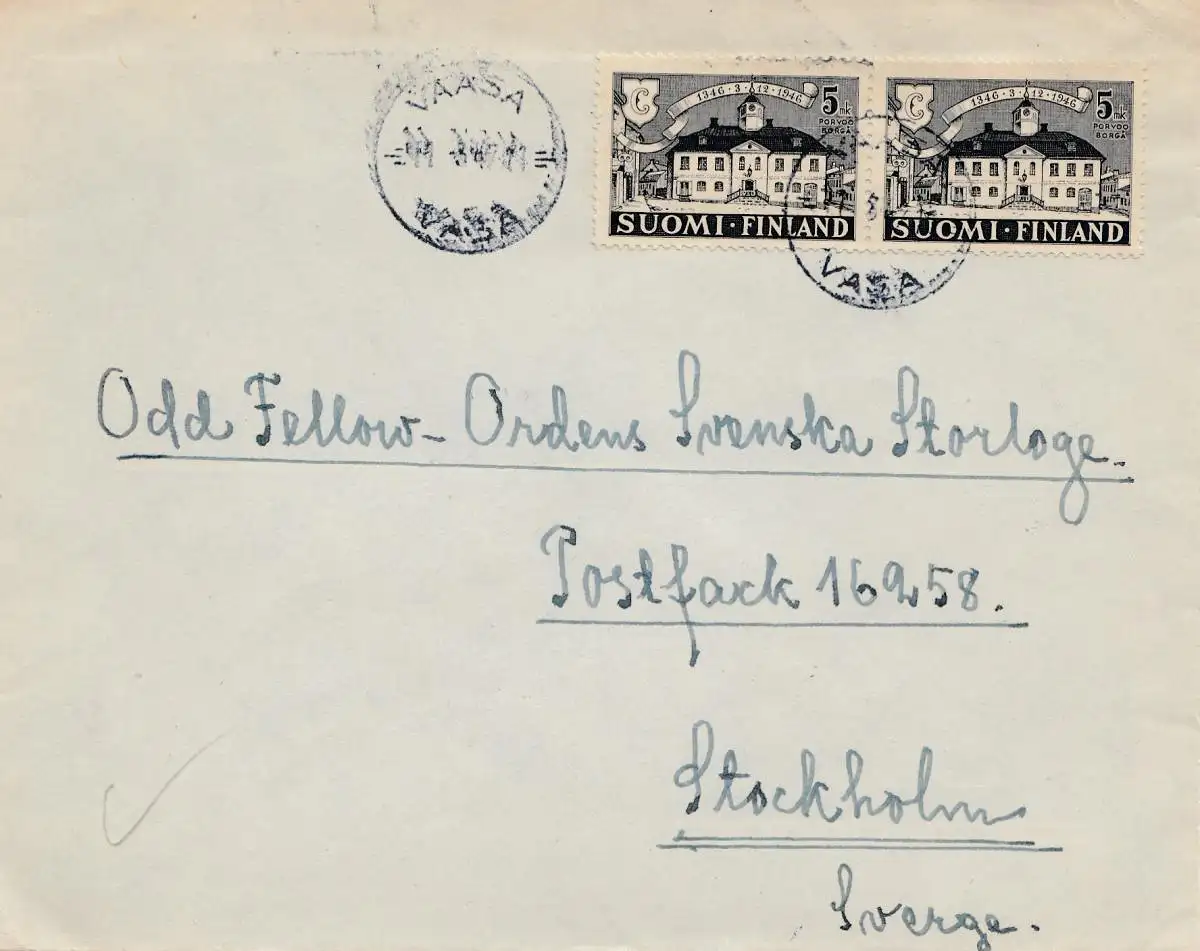 VAASA
VASA
1346·3·12·1946
5 mk
PORVOO
BORGÅ
SUOMI·FINLAND
1346·3·12·1946
5 mk
PORVOO
BORGÅ
SUOMI·FINLAND
VASA
Odd Fellow-Ordens Svenska Storloge.
Postfack 16258.
Stockholm
Sverge.